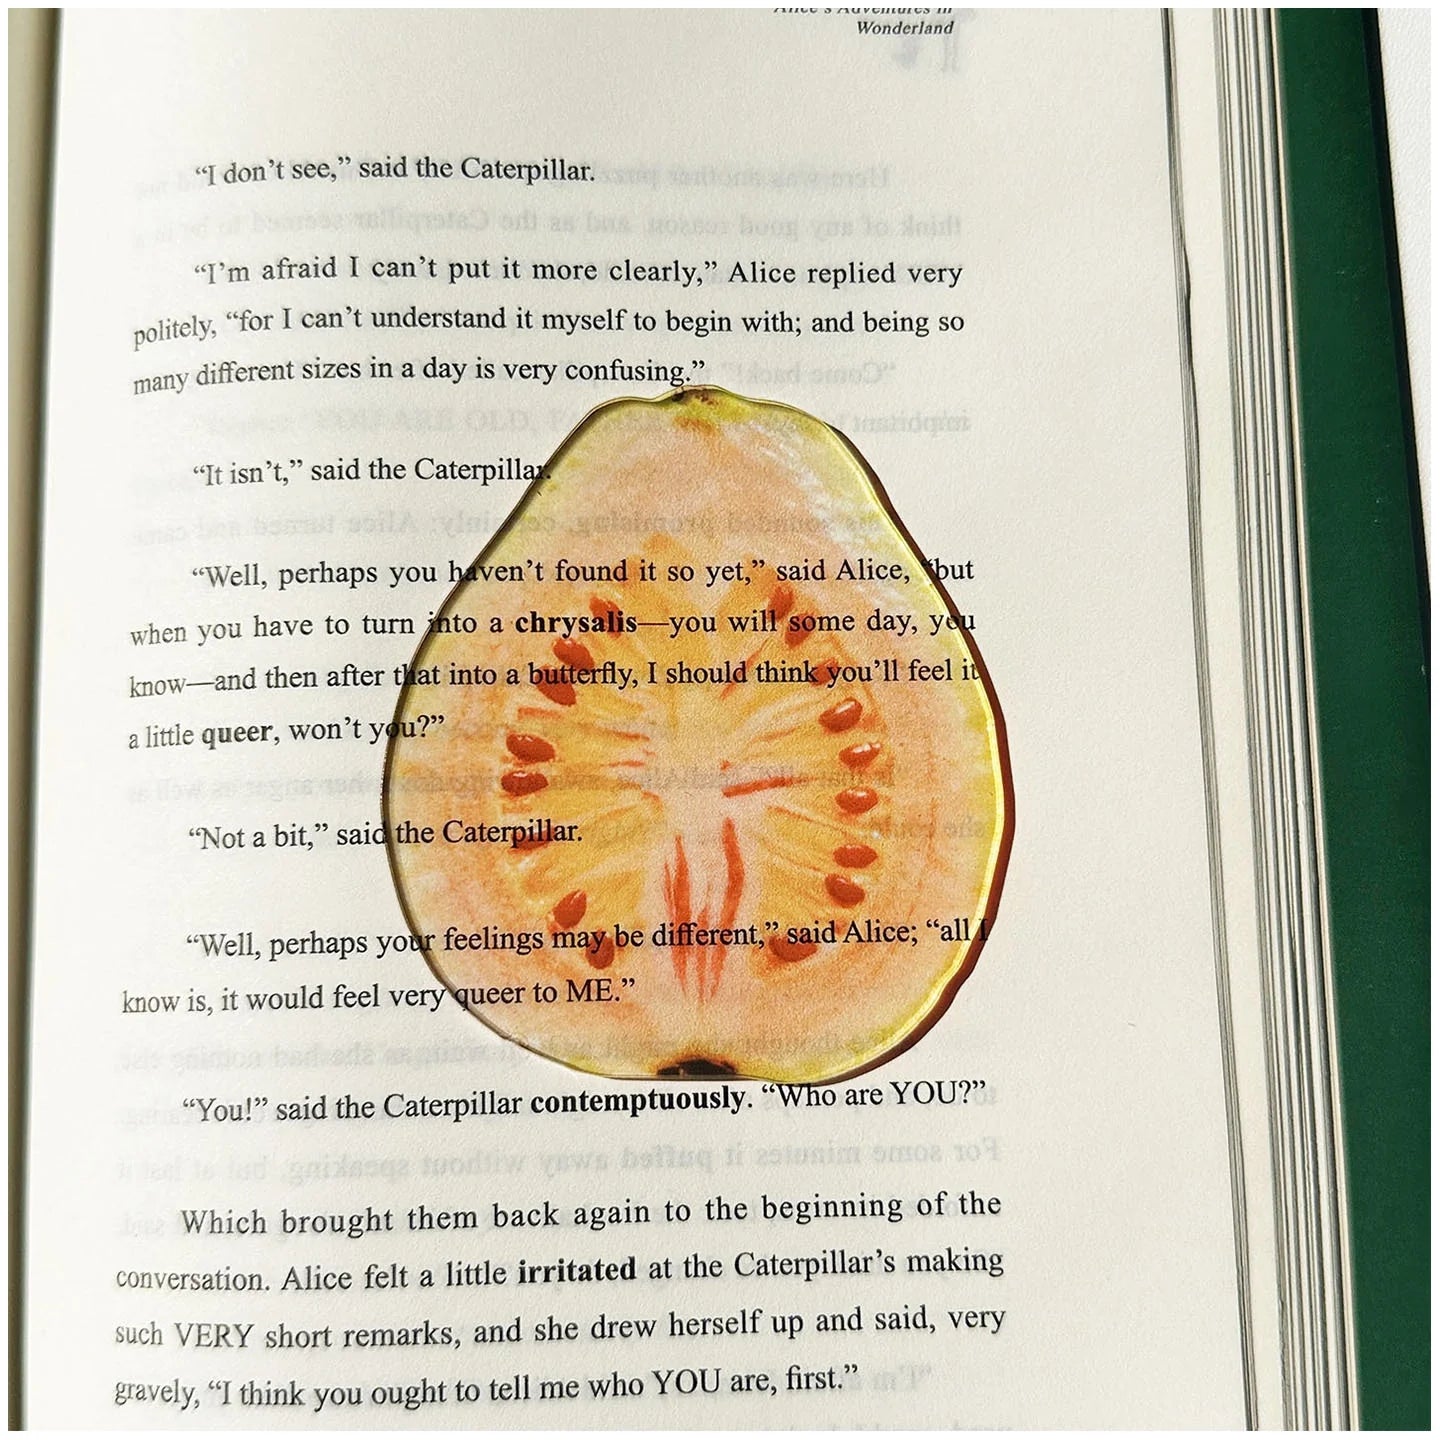 Alice's Adventures in
Wonderland
“I don’t see,” said the Caterpillar.
“I’m afraid I can’t put it more clearly,” Alice replied very
politely, “for I can’t understand it myself to begin with; and being so
many different sizes in a day is very confusing.”
“It isn’t,” said the Caterpillar.
“Well, perhaps you haven’t found it so yet,” said Alice, “but
when you have to turn into a chrysalis—you will some day, you
know—and then after that into a butterfly, I should think you’ll feel it
a little queer, won’t you?”
“Not a bit,” said the Caterpillar.
“Well, perhaps your feelings may be different,” said Alice; “all I
know is, it would feel very queer to ME.”
“You!” said the Caterpillar contemptuously. “Who are YOU?”
Which brought them back again to the beginning of the
conversation. Alice felt a little irritated at the Caterpillar’s making
such VERY short remarks, and she drew herself up and said, very
gravely, “I think you ought to tell me who YOU are, first.”